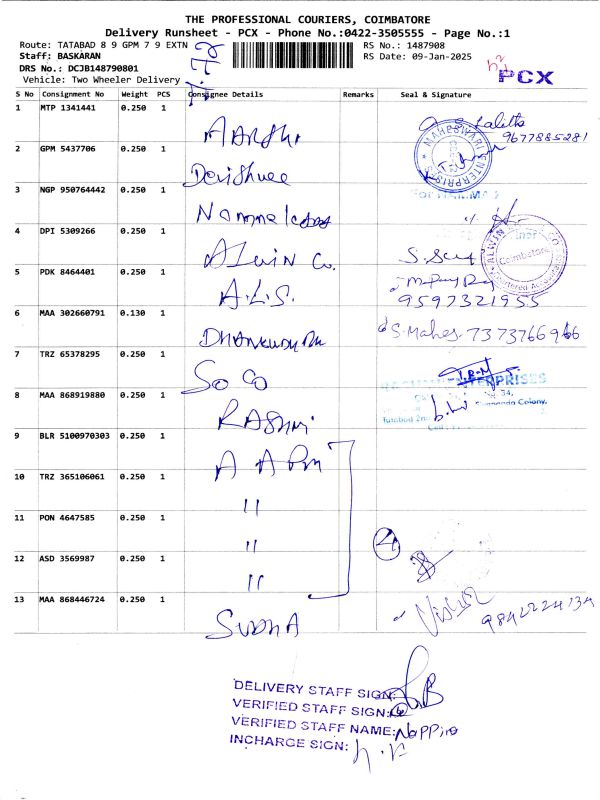 THE PROFESSIONAL COURIERS, COIMBATORE
Delivery Runsheet - PCX - Phone No.:0422-3505555 - Page No.:1
Route: TATABAD 8 9 GPM 7 9 EXTN RS No.: 1487908
Staff: BASKARAN RS Date: 09-Jan-2025
DRS No.: DCJB148790801
PCX
Vehicle: Two Wheeler Delivery
S No Consignment No Weight PCS Consignee Details Remarks Seal & Signature
1 MTP 1341441 0.250 1
Lalitha
9677885281
2 GPM 5437706 0.250 1
MAHESWARI ENTERPRISES
3 NGP 950764442 0.250 1
4 DPI 5309266 0.250 1 Alwin Co.
Coimbatore
Chartered Accountants
5 PDK 8464401 0.250 1 A.L.S.
9597321955
6 MAA 302660791 0.130 1
S. Mahes. 7373766966
7 TRZ 65378295 0.250 1 So Co
ENTERPRISES
8 MAA 868919880 0.250 1 RASHMI
Tatabad 2nd Colony,
9 BLR 5100970303 0.250 1 A A Pm
10 TRZ 365106061 0.250 1 "
11 PON 4647585 0.250 1 "
4
12 ASD 3569987 0.250 1 "
13 MAA 868446724 0.250 1 SUDHA
9842224134
DELIVERY STAFF SIGN:
VERIFIED STAFF SIGN:
VERIFIED STAFF NAME:
INCHARGE SIGN: